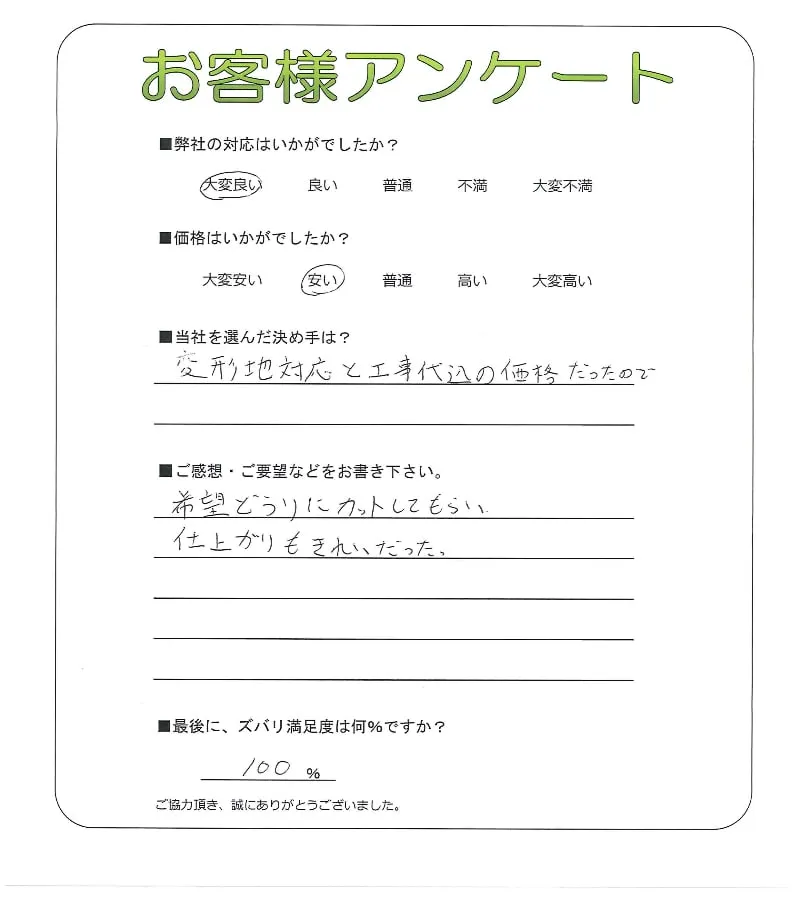 お客様アンケート
■弊社の対応はいかがでしたか？
大変良い 良い 普通 不満 大変不満
■価格はいかがでしたか？
大変安い 安い 普通 高い 大変高い
■当社を選んだ決め手は？
変形地対応と工事代込の価格だったので
■ご感想・ご要望などをお書き下さい。
希望どうりにカットしてもらい、
仕上がりもきれいだった。
■最後に、ズバリ満足度は何%ですか？
100 %
ご協力頂き、誠にありがとうございました。